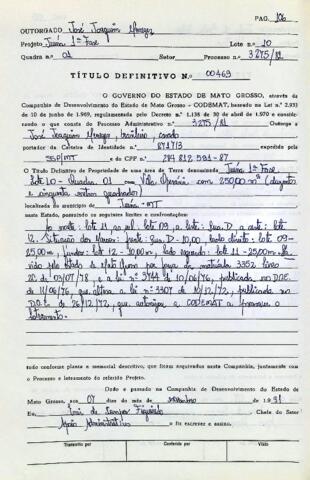 PAG. 106
OUTORGADO José Joaquim
Projeto Juína 1ª Fase Lote n.º 10
Quadra n.º 01 Setor Processo n.º 3275/81
TÍTULO DEFINITIVO N.º 00469
O GOVERNO DO ESTADO DE MATO GROSSO, através da
Companhia de Desenvolvimento do Estado de Mato Grosso - CODEMAT, baseado na Lei n.º 2.931
de 10 de junho de 1.969, regulamentada pelo Decreto n.º 1.138 de 30 de abril de 1.970 e consitindo
o que consta do Processo Administrativo n.º 3275/81 Outorga a
José Joaquim brasileiro, casado
portador da Carteira de Identidade n.º 871713 expedida pela
SSP/MT e do CPF n.º 274 812 591-87
O Título Definitivo de Propriedade de uma área de Terra denominada Juína 1ª Fase,
Lote 10 - Quadra 01 - Vila Operária - com 250,00 m² (duzentos
e cinquenta metros quadrados)
localizada no município de Juína - MT
neste Estado, possuindo os seguintes limites e confrontações:
Ao norte: lote 11, ao sul: lote 09, a leste: Rua D, a oeste: lote
12. frente: Rua D - 10,00, lado direito: lote 09 -
25,00m, fundos: lote 12 - 10,00m, lado esquerdo: lote 11 - 25,00m.
pelo Estado de Mato Grosso por força da matrícula 3352 livro
de 03/07/78 e a lei nº 3744 de 10/06/76, publicada no D.O.E.
de 11/06/76, que altera a lei nº 3307 de 18/12/72, publicada no
D.O.E. de 26/12/72, que autoriza a CODEMAT a promover o
loteamento.
tudo conforme planta e memorial descritivo, que ficam arquivados nesta Companhia, juntamente com
o Processo e loteamento do referido Projeto.
Dado e passado na Companhia de Desenvolvimento do Estado de
Mato Grosso, aos 07 dias do mês de de 1.981
Eu, Luiz de Chefe do Setor
Apoio Administrativo o fiz escrever e assino.
Transcrito por Conferido por Visto